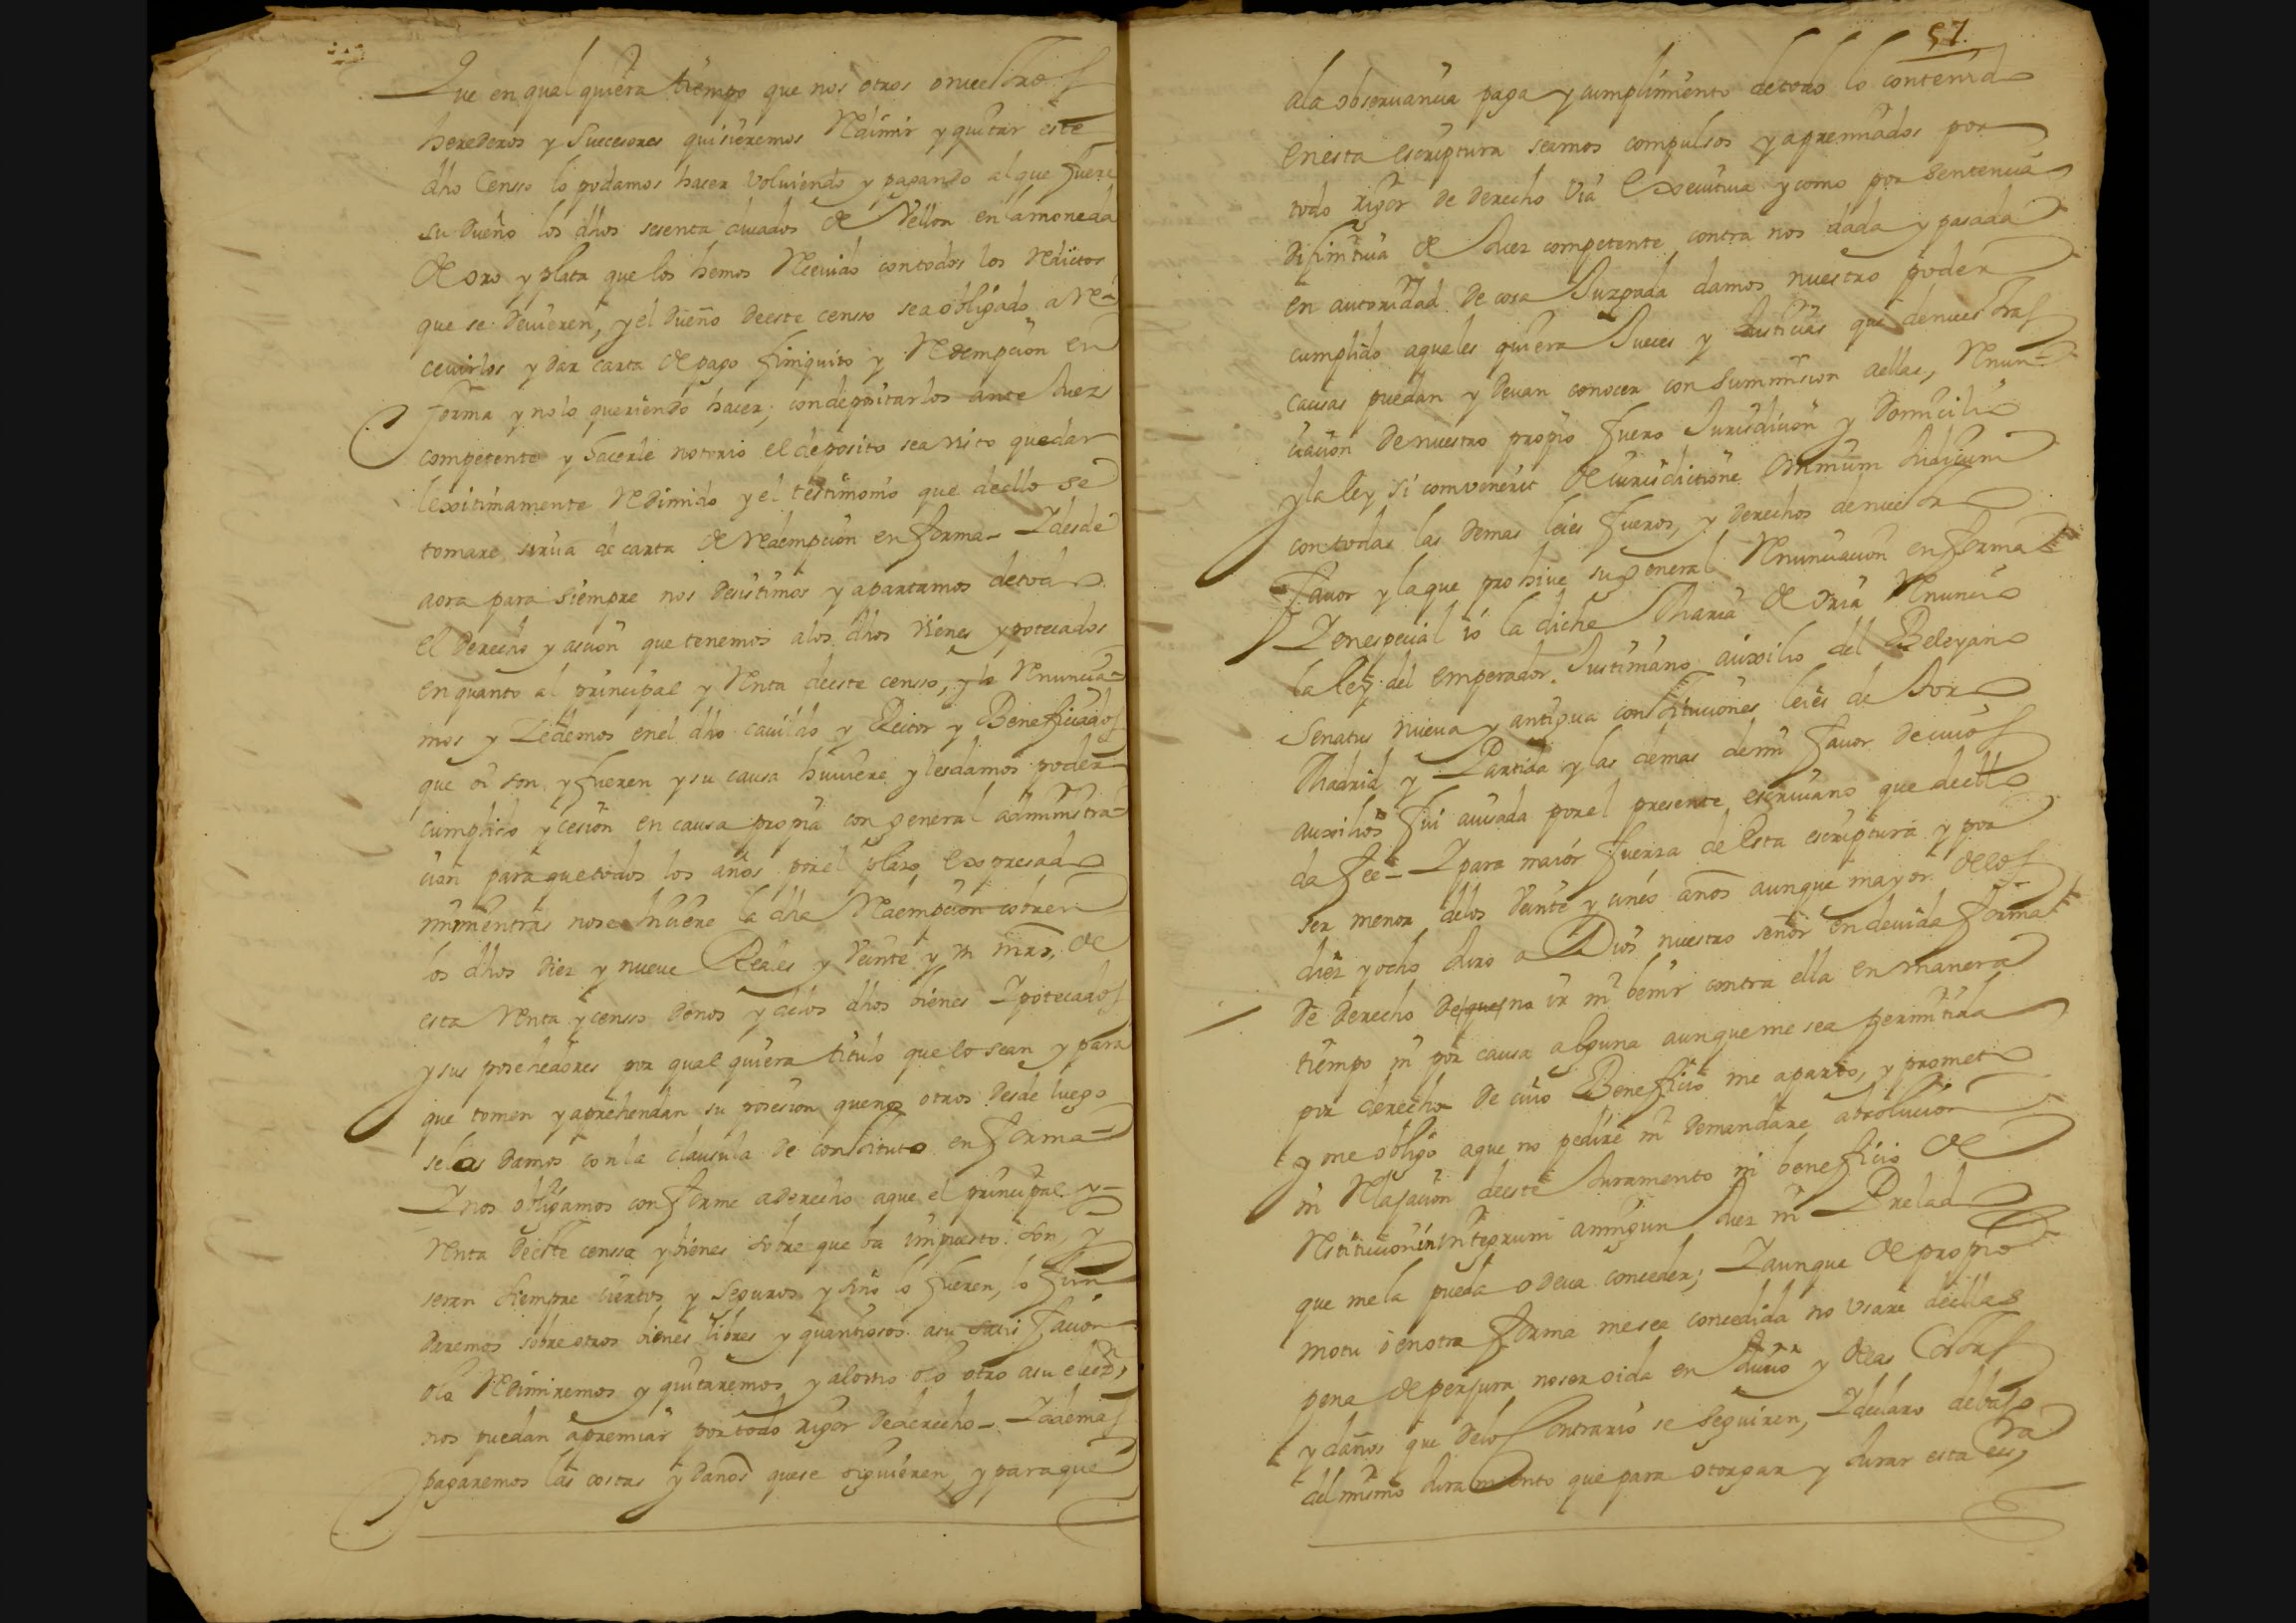 Que en qual quiera tiempo que nos otros o nuestros
herederos y Succesores quisieremos Redimir y quitar este
dho Censso lo podamos hacer volviendo y pagando al que fuere
su dueño los dhos sesenta ducados de Vellon en la moneda
de oro y plata que los hemos Recivido con todos los Reditos
que se devieren, y el dueño deeste censso sea obligado a Re-
cevirlos y dar carta de pago finiquito y Redempcion en
forma y no lo queriendo hacer, con depositarlos ante Juez
competente y hacerle notorio el deposito sea visto quedar
lexitimamente redimido y el testimonio que deello se
tomare sirva de carta de redempcion en forma - I desde
aora para siempre nos desistimos y apartamos de todo
el derecho y acion que tenemos a los dhos vienes ypotecados
en quanto al principal y Renta deeste censso, y lo Renuncia-
mos y Zedemos en el dho cavildo y Retor y Beneficiados
que oi son y fueren y su causa huviere y lesdamos poder
cumplido y cesion en causa propia con general administra-
cion para que todos los años por el plazo expresado
mientras nose hiciere la dha Redempcion cobren
los dhos diez y nueve Reales y veinte y un mrs, de
esta Renta y censso de nos y delos dhos bienes Ypotecados
y sus posehedores por qual quiera titulo que lo sean y para
que tomen y aprehendan su posesion que nos otros desde luego
selas damos con la clausula de constituto en forma-
I nos obligamos conforme aderecho aque el principal y-
renta deeste censso y bienes sobre que va impuesto son y
seran siempre ciertos y seguros y sino lo fueren, lo fun
daremos sobre otros bienes libres y quantiosos asu satisfacion
o lo Redimiremos y quitaremos y alo uno o lo otro asu elecon
nos puedan apremiar por todo rigor de derecho - I ademas
pagaremos las costas y daños que se siguieren, y para que
57.
ala observancia paga y cumplimiento detodo lo contenido
en esta escriptura seamos compulsos y apremiados por
todo rigor de derecho via executiva y como por sentencia
difinitiva de Juez competente contra nos dada y pasada
en autoridad de cosa Juzgada damos nuestro poder
cumplido aquales quiera Jueces y Justicias que denuestras
causas puedan y devan conocer con Summision aellas, Renun-
ciacion de nuestro propio fuero Jurisdicion y Domicilio
y la ley si convenerit de iurisdictione Omnium Judicum
con todas las demas leies fueros, y derechos denuestro
favor y la que prohive su general Renunciacion en forma
I en especial io la dicha Maria de Oria Renuncio
la ley del emperador Justiniano auxilio del Beleyano
Senatus nueva y antigua constituciones leies de Toro
Madrid y Partida y las demas demi favor de cuios
auxilios fui avisada por el presente escrivano que deello
da fee - I para maior fuerza de Esta escriptura y por
ser menor delos veinte y cinco años aunque mayor delos
diez y ocho Juro a Dios nuestro señor en devida forma
de derecho de que no ir ni benir contra ella en manera
tiempo ni por causa alguna aunque me sea permitida
por derecho de cuio Beneficio me aparto, y prometo
y me obligo aque no pedire ni demandare absolucion
ni Relajacion deeste Juramento ni beneficio de
Restitucion in integrum aningun Juez ni Prelado
que me la pueda o deva conceder; I aunque de propio
motu i en otra forma mesea concedida no usare deella
pena de perjura noser oida en Juicio y delas Costas
y daños que delo Contrario se seguiren, I declaro debajo
del mismo Juramento que para otorgar y Jurar esta escra